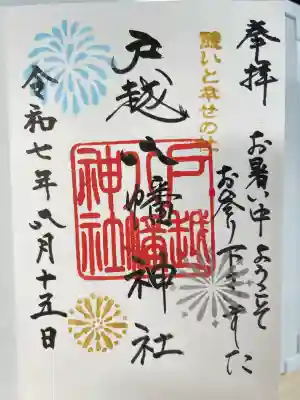 奉拝
お暑い中ようこそ
お参り下さいました
戸越八幡神社
戸越
八幡
神社
令和七年八月十五日